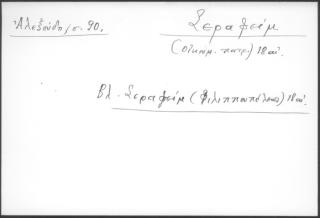 Ἀλεξούδη, σ. 90.
Σεραφείμ
(Οἰκουμ. πατρ.) 18 αἰ.
Βλ. Σεραφείμ (Φιλιππουπόλεως) 18 αἰ.